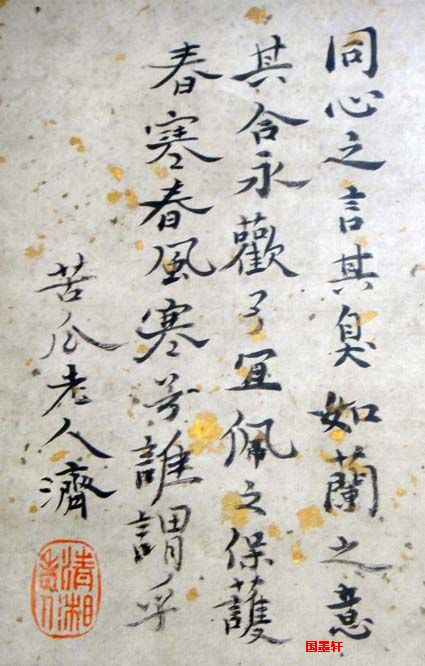 同心之言其臭如蘭之意
其合永歡兮宜佩之保護
春寒春風寒兮誰謂乎
苦瓜老人濟
清湘老人
国墨轩